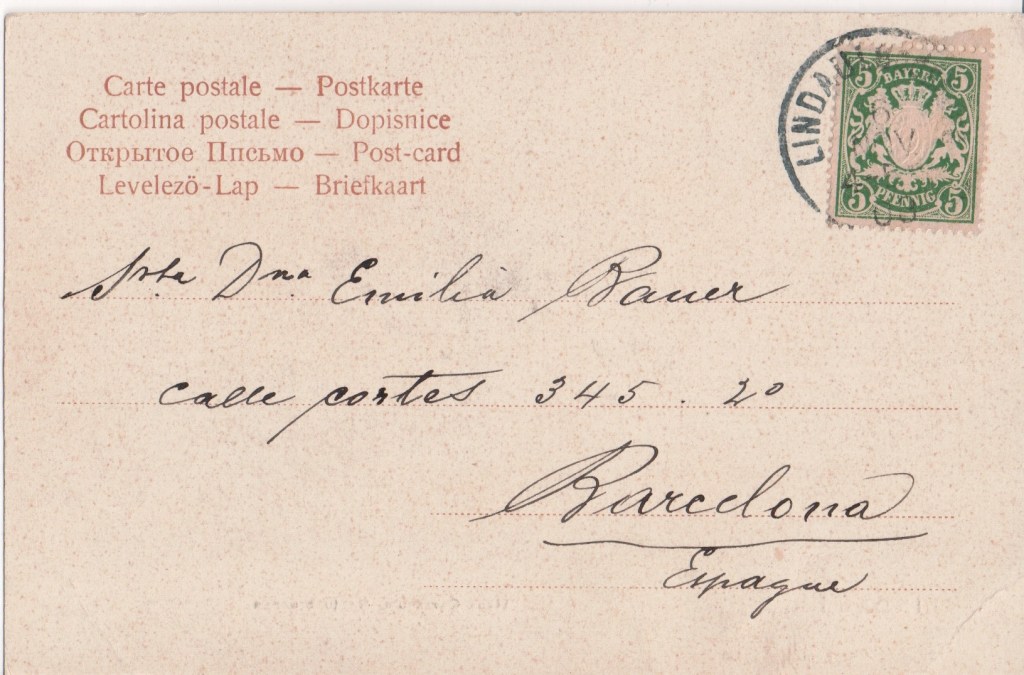 Carte postale — Postkarte
Cartolina postale — Dopisnice
Открытое Письмо — Post-card
Levelező-Lap — Briefkaart
LINDAU
5 BAYERN 5
5 PFENNIG 5
Srta Dna Emilia Bauer
calle cortes 345. 2º
Barcelona
Espagne